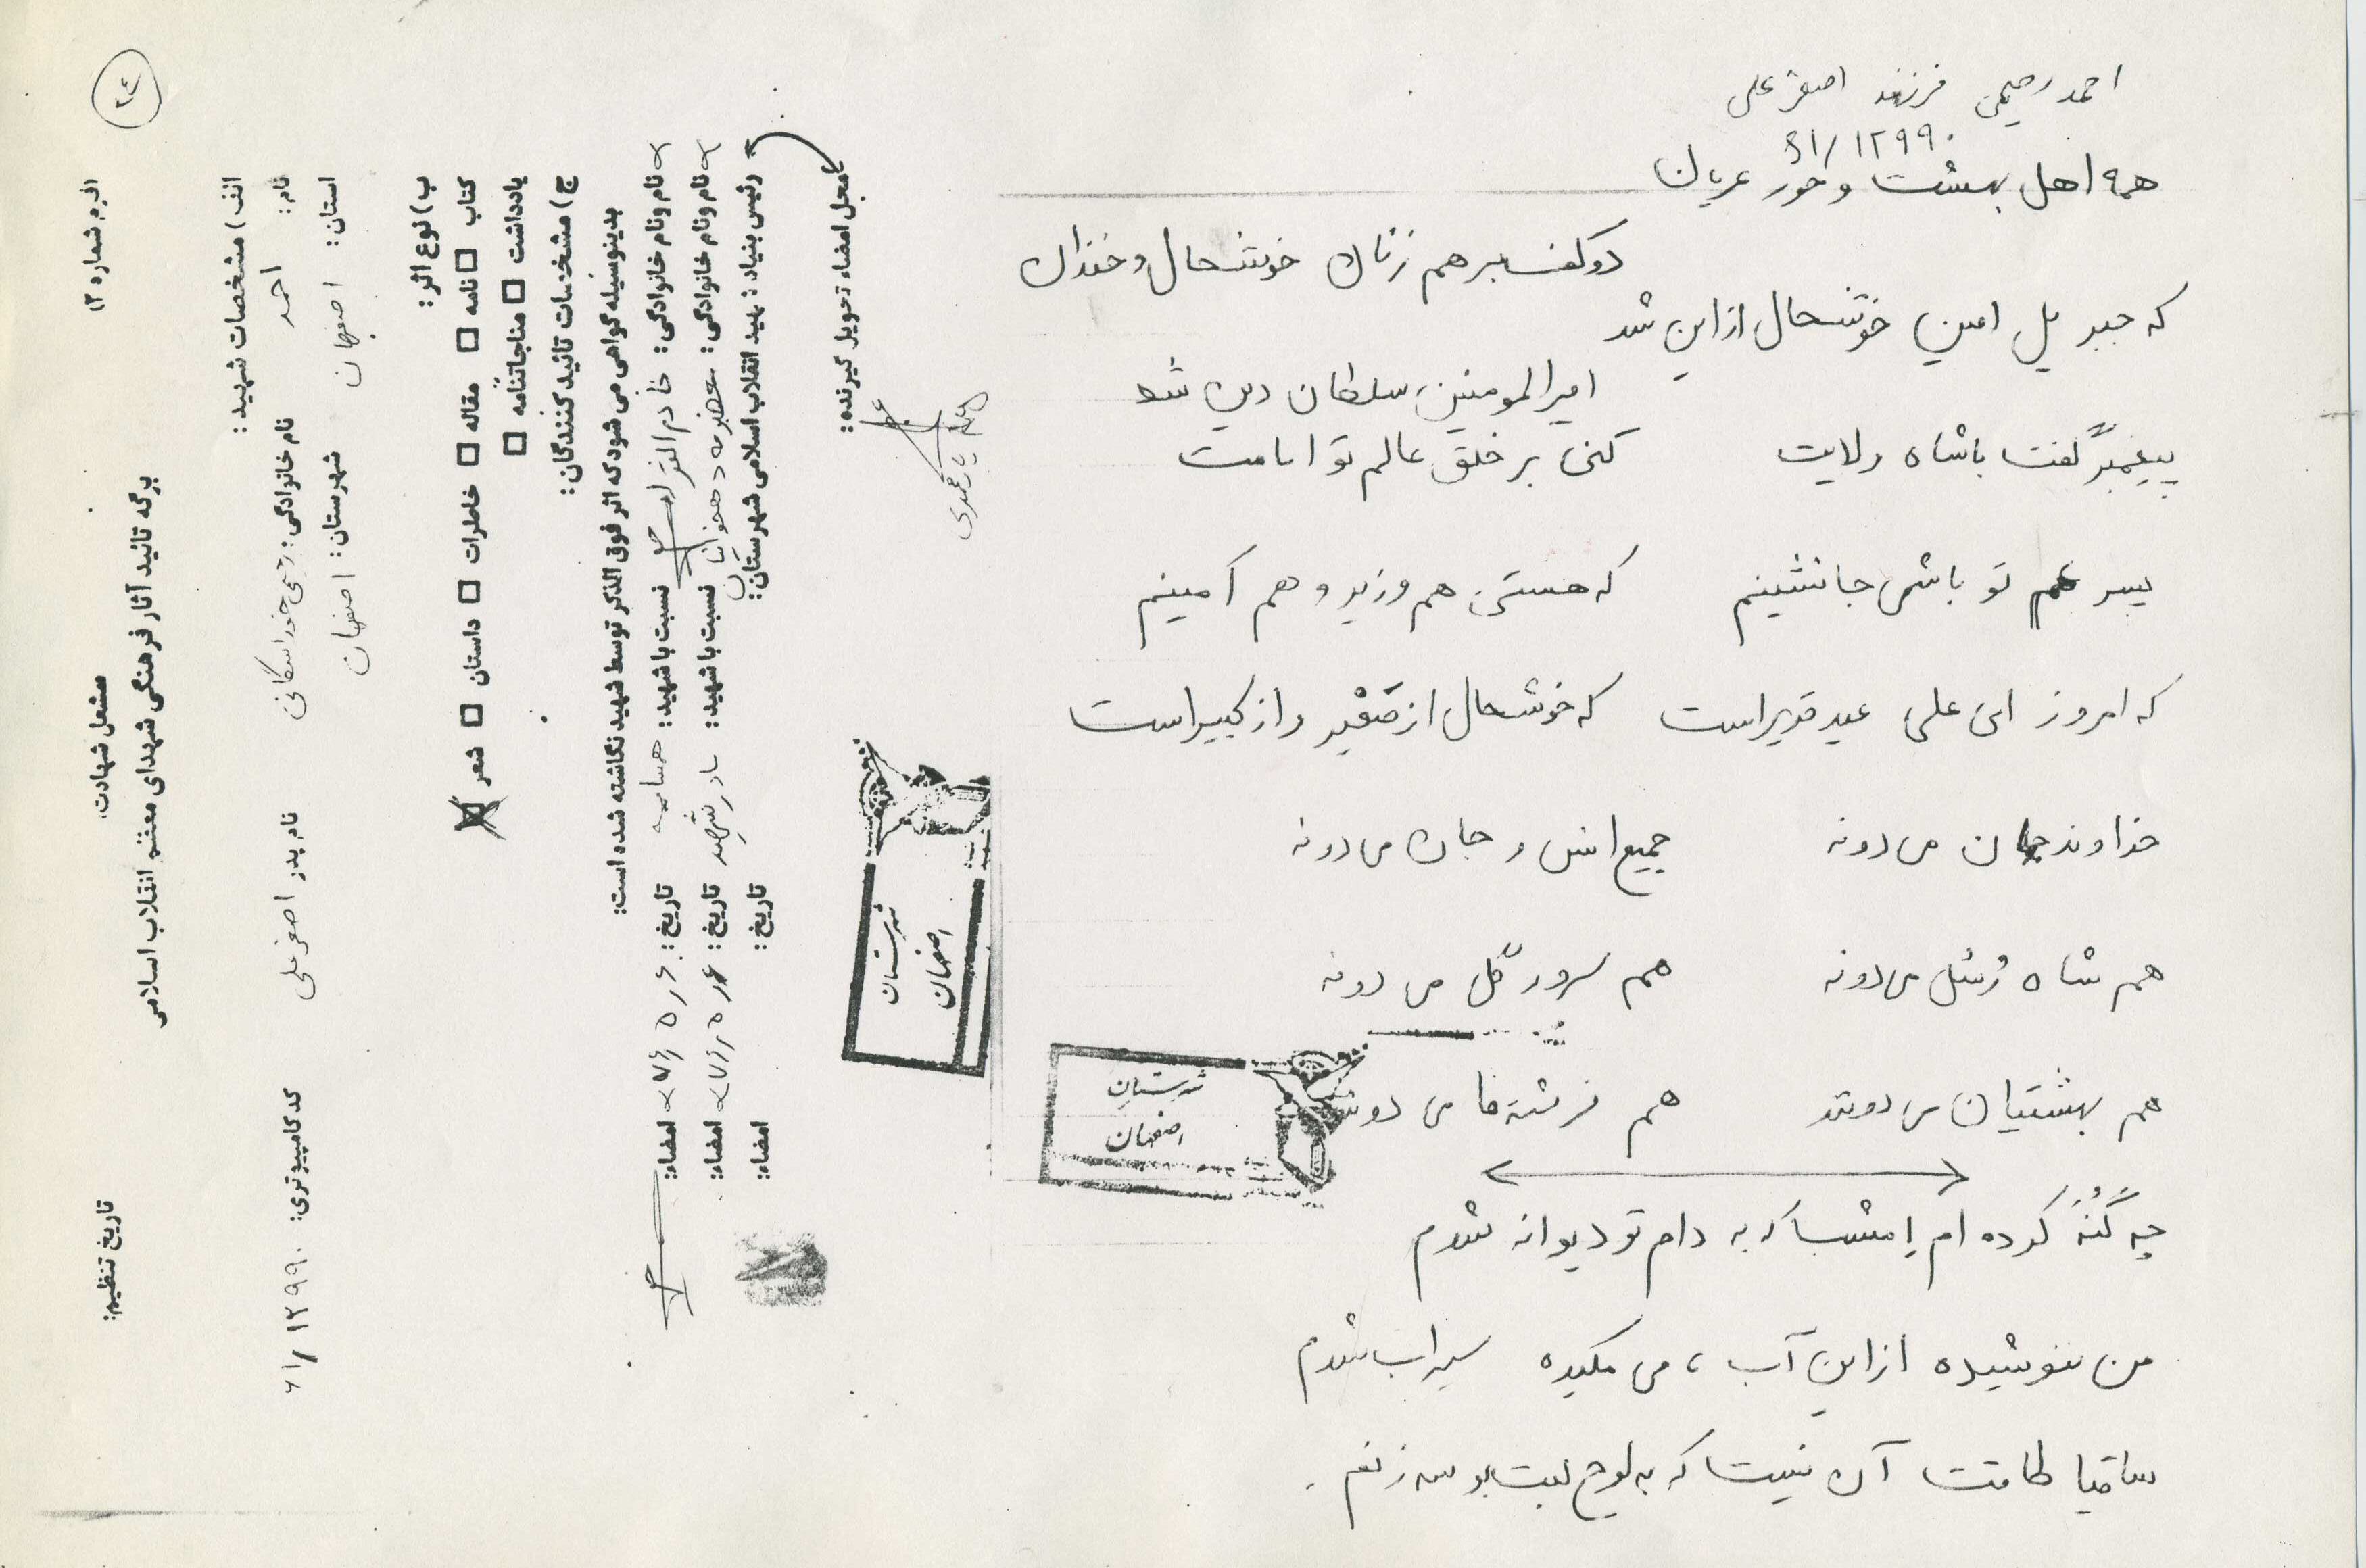 احمد رحیمی فرزند اصغر علی
۶۱/۱۲۹۹۰
همه اهل بهشت و حور عریان
دو کف بر هم زنان خوشحال و خندان
که جبریل امین خوشحال از این شد
امیرالمومنین سلطان دین شد
پیغمبر گفت با شاه ولایت کنی بر خلق عالم تو امامت
پسر عم تو باشی جانشینم که هستی هم وزیر و هم آمینم
که امروز ای علی عید قدیر است که خوشحال از صَقیر و از کبیر است
خداوند جهان می دونه جمیع انس و جان می دونه
هم شاه رُسُل می دونه هم سرور کُل می دونه
هم بهشتیان می دونند هم فرشته ها می دونند
چه گُنَهً کرده ام اِمشب که به دام تو دیوانه شدم
من ننوشیده از این آب ، می مکیده سیراب شدم
ساقیا طاقت آن نیست که به لوح لبت بوسه زنم .
شهرستان
اصفهان
۲۴
(فرم شماره ۲)
مشعل شهادت،
تاریخ تنظیم:
برگه تائید آثار فرهنگی شهدای معظم انقلاب اسلامی
الف) مشخصات شهید:
نام: احمد نام خانوادگی: رحیمی خوراسگانی نام پدر اصغر علی کد کامپیوتری: ۶۱/۱۲۹۹۰
استان: اصفهان شهرستان: اصفهان
ب) نوع اثر:
کتاب □ نامه □ مقاله □ خاطرات □ داستان □ شعر ☒
یادداشت □ مناجاتنامه □
ج) مشخصات تائید کنندگان:
بدینوسیله گواهی می شود که اثر فوق الذکر توسط شهید نگاشته شده است:
نام و نام خانوادگی: خادم نسبت با شهید: همسایه تاریخ: امضاء:
نام و نام خانوادگی: نسبت با شهید: مادر شهید تاریخ: امضاء:
رئیس بنیاد شهید انقلاب اسلامی شهرستان: تاریخ: امضاء:
محل امضاء تحویل گیرنده:
شهرستان
اصفهان